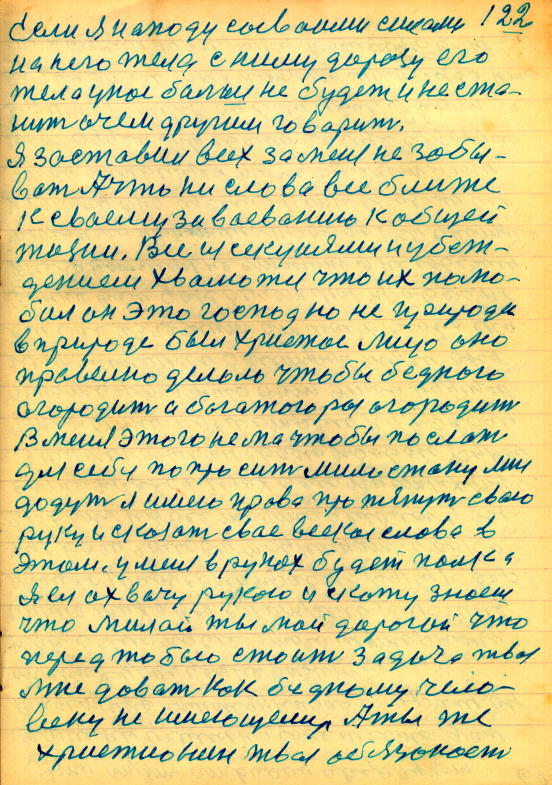 Если я находу со воими силами 122
на него жела с ниму дорогу его
жела уное балши не будет и не ста-
нит о чем другим говарит.
Я заставил всех за меня не зобы-
ват А что ни слова все ближе
к сваему завоеванию к общей
жизни. Все
дением Хвалю же что их
бил он Это господ но не природа
в природе был христос лицо оно
правелно делоло чтобы бедного
огородит а багатого разогородит
В меня этого нема чтобы послат
для себя попросит милостану мы
додут я имею права протянут сваю
руку и сказат свае веское слова в
этом. у меня в руках будет палка
Я ея охвачу рукою и скажу знаеш
что милай ты мой дорогой что
перед тобою стоит задача твая
мне доват как бедному чело-
веку не имеющему А ты же
христиовин твая обязоност